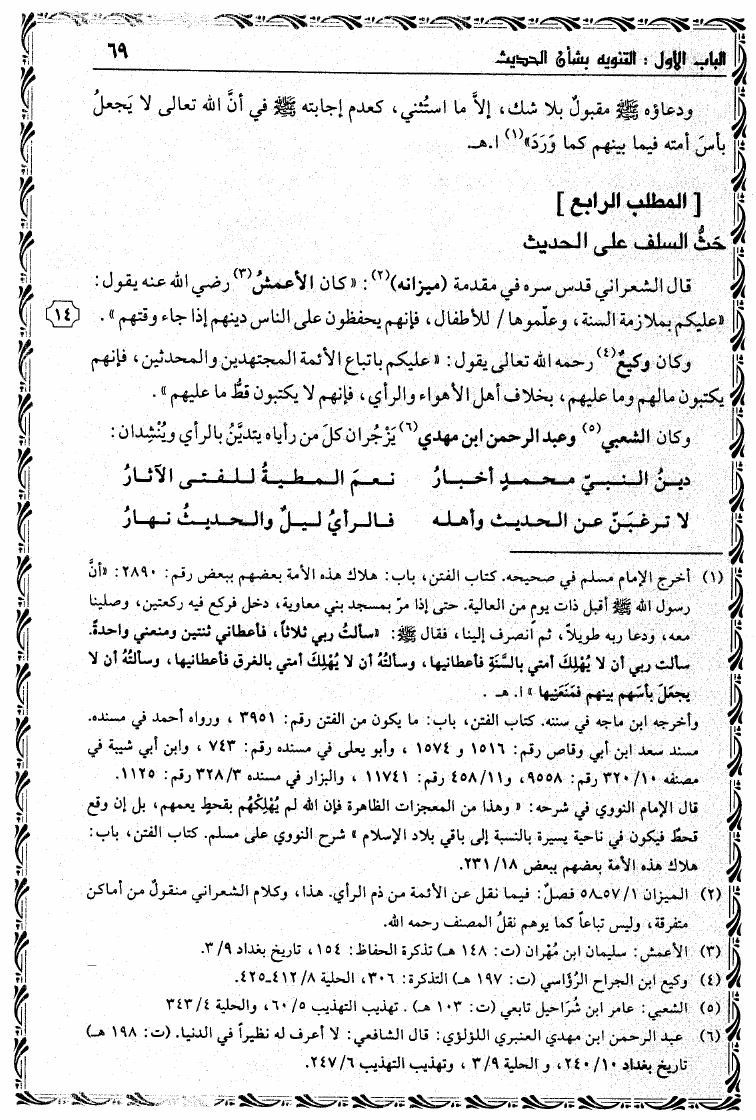 الباب الأول : التنويه بشأن الحديث ٦٩
ودعاؤه ﷺ مقبولٌ بلا شك، إلاَّ ما استُثني، كعدم إجابته ﷺ في أنَّ الله تعالى لا يَجعلُ
بأسَ أمته فيما بينهم كما وَرَدَ»(١) ا.هـ.
[ المطلب الرابع ]
حَثُّ السلف على الحديث
قال الشعراني قدس سره في مقدمة (ميزانه)(٢) : « كان الأعمشُ(٣) رضي الله عنه يقول :
«عليكم بملازمة السنة، وعلّموها / للأطفال، فإنهم يحفظون على الناس دينهم إذا جاء وقتهم» . ١٤
وكان وكيعٌ(٤) رحمه الله تعالى يقول : « عليكم باتباع الأئمة المجتهدين والمحدثين، فإنهم
يكتبون مالهم وما عليهم، بخلاف أهل الأهواء والرأي، فإنهم لا يكتبون قطُّ ما عليهم » .
وكان الشعبي(٥) وعبد الرحمن ابن مهدي(٦) يَزْجُران كلَ من رأياه يتديَّنُ بالرأي ويُنْشِدان :
دينُ النبيّ محمدٍ أخبارُ نعمَ المطيةُ للفتى الآثارُ
لا ترغبَنّ عن الحديث وأهله فالرأيُ ليلٌ والحديثُ نهارُ
(١) أخرج الإمام مسلم في صحيحه. كتاب الفتن، باب: هلاك هذه الأمة بعضهم ببعض رقم: ٢٨٩٠: «أنَّ
رسول الله ﷺ أقبل ذات يومٍ من العالية. حتى إذا مرّ بمسجد بني معاوية، دخل فركع فيه ركعتين، وصلينا
معه، ودعا ربه طويلاً، ثم انصرف إلينا، فقال ﷺ: «سألتُ ربي ثلاثاً، فأعطاني ثنتين ومنعني واحدةً.
سألت ربي أن لا يُهْلِكَ أمتي بالسَّنَةِ فأعطانيها، وسألتُهُ أن لا يُهْلِكَ أمتي بالغرق فأعطانيها، وسألتُهُ أن لا
يجعلَ بأسَهم بينهم فَمَنَعَنِيها » ا. هـ .
وأخرجه ابن ماجه في سننه. كتاب الفتن، باب: ما يكون من الفتن رقم: ٣٩٥١ ، ورواه أحمد في مسنده.
مسند سعد ابن أبي وقاص رقم: ١٥١٦ و ١٥٧٤ ، وأبو يعلى في مسنده رقم: ٧٤٣ ، وابن أبي شيبة في
مصنفه ٣٢٠/١٠ رقم: ٩٥٥٨، و٤٥٨/١١ رقم: ١١٧٤١ ، والبزار في مسنده ٣٢٨/٣ رقم: ١١٢٥.
قال الإمام النووي في شرحه: « وهذا من المعجزات الظاهرة فإن الله لم يُهْلِكْهُم بقحطٍ يعمهم، بل إن وقع
قحطٌ فيكون في ناحية يسيرة بالنسبة إلى باقي بلاد الإسلام » شرح النووي على مسلم. كتاب الفتن، باب:
هلاك هذه الأمة بعضهم ببعض ٢٣١/١٨.
(٢) الميزان ٥٧/١ـ٥٨ فصلٌ: فيما نقل عن الأئمة من ذم الرأي. هذا، وكلام الشعراني منقولٌ من أماكن
متفرقة، وليس تباعاً كما يوهم نقلُ المصنف رحمه الله.
(٣) الأعمش: سليمان ابن مُهْران (ت: ١٤٨ هـ) تذكرة الحفاظ: ١٥٤، تاريخ بغداد ٣/٩.
(٤) وكيع ابن الجراح الرُؤاسي (ت: ١٩٧ هـ) التذكرة: ٣٠٦، الحلية ٤١٢/٨ـ٤٢٥.
(٥) الشعبي: عامر ابن شُرَاحيل تابعي (ت: ١٠٣ هـ) . تهذيب التهذيب ٦٠/٥، والحلية ٣٤٣/٤
(٦) عبد الرحمن ابن مهدي العنبري اللؤلؤي: قال الشافعي: لا أعرف له نظيراً في الدنيا. (ت: ١٩٨ هـ)
تاريخ بغداد ٢٤٠/١٠، و الحلية ٣/٩ ، وتهذيب التهذيب ٢٤٧/٦.